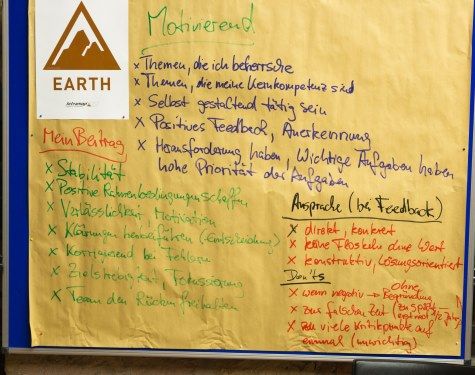 EARTH
Motivierend
x Themen, die ich beherrsche
x Themen, die meine Kernkompetenz sind
x Selbst gestaltend tätig sein
x Positives Feedback, Anerkennung
x Herausforderung haben, Wichtige Aufgaben haben
hohe Priorität der Aufgaben
Mein Beitrag
x Stabilität
x Positive Rahmenbedingungen schaffen
x Verlässlichkeit, Motivation
x Klärungen herbeiführen (-Entscheidung)
x Korrigierend bei Fehlern
x Zielstrebigkeit, Fokussierung
x Team den Rücken freihalten
Ansprache (bei Feedback)
x direkt, konkret
x keine Floskeln ohne Wert
x konstruktiv, Lösungsorientiert
Don'ts
x wenn negativ → Ohne Begründung
x zur falschen Zeit (zu spät
erst nach 1/2 Jahr)
x zu viele Kritikpunkte auf
einmal (unwichtig)